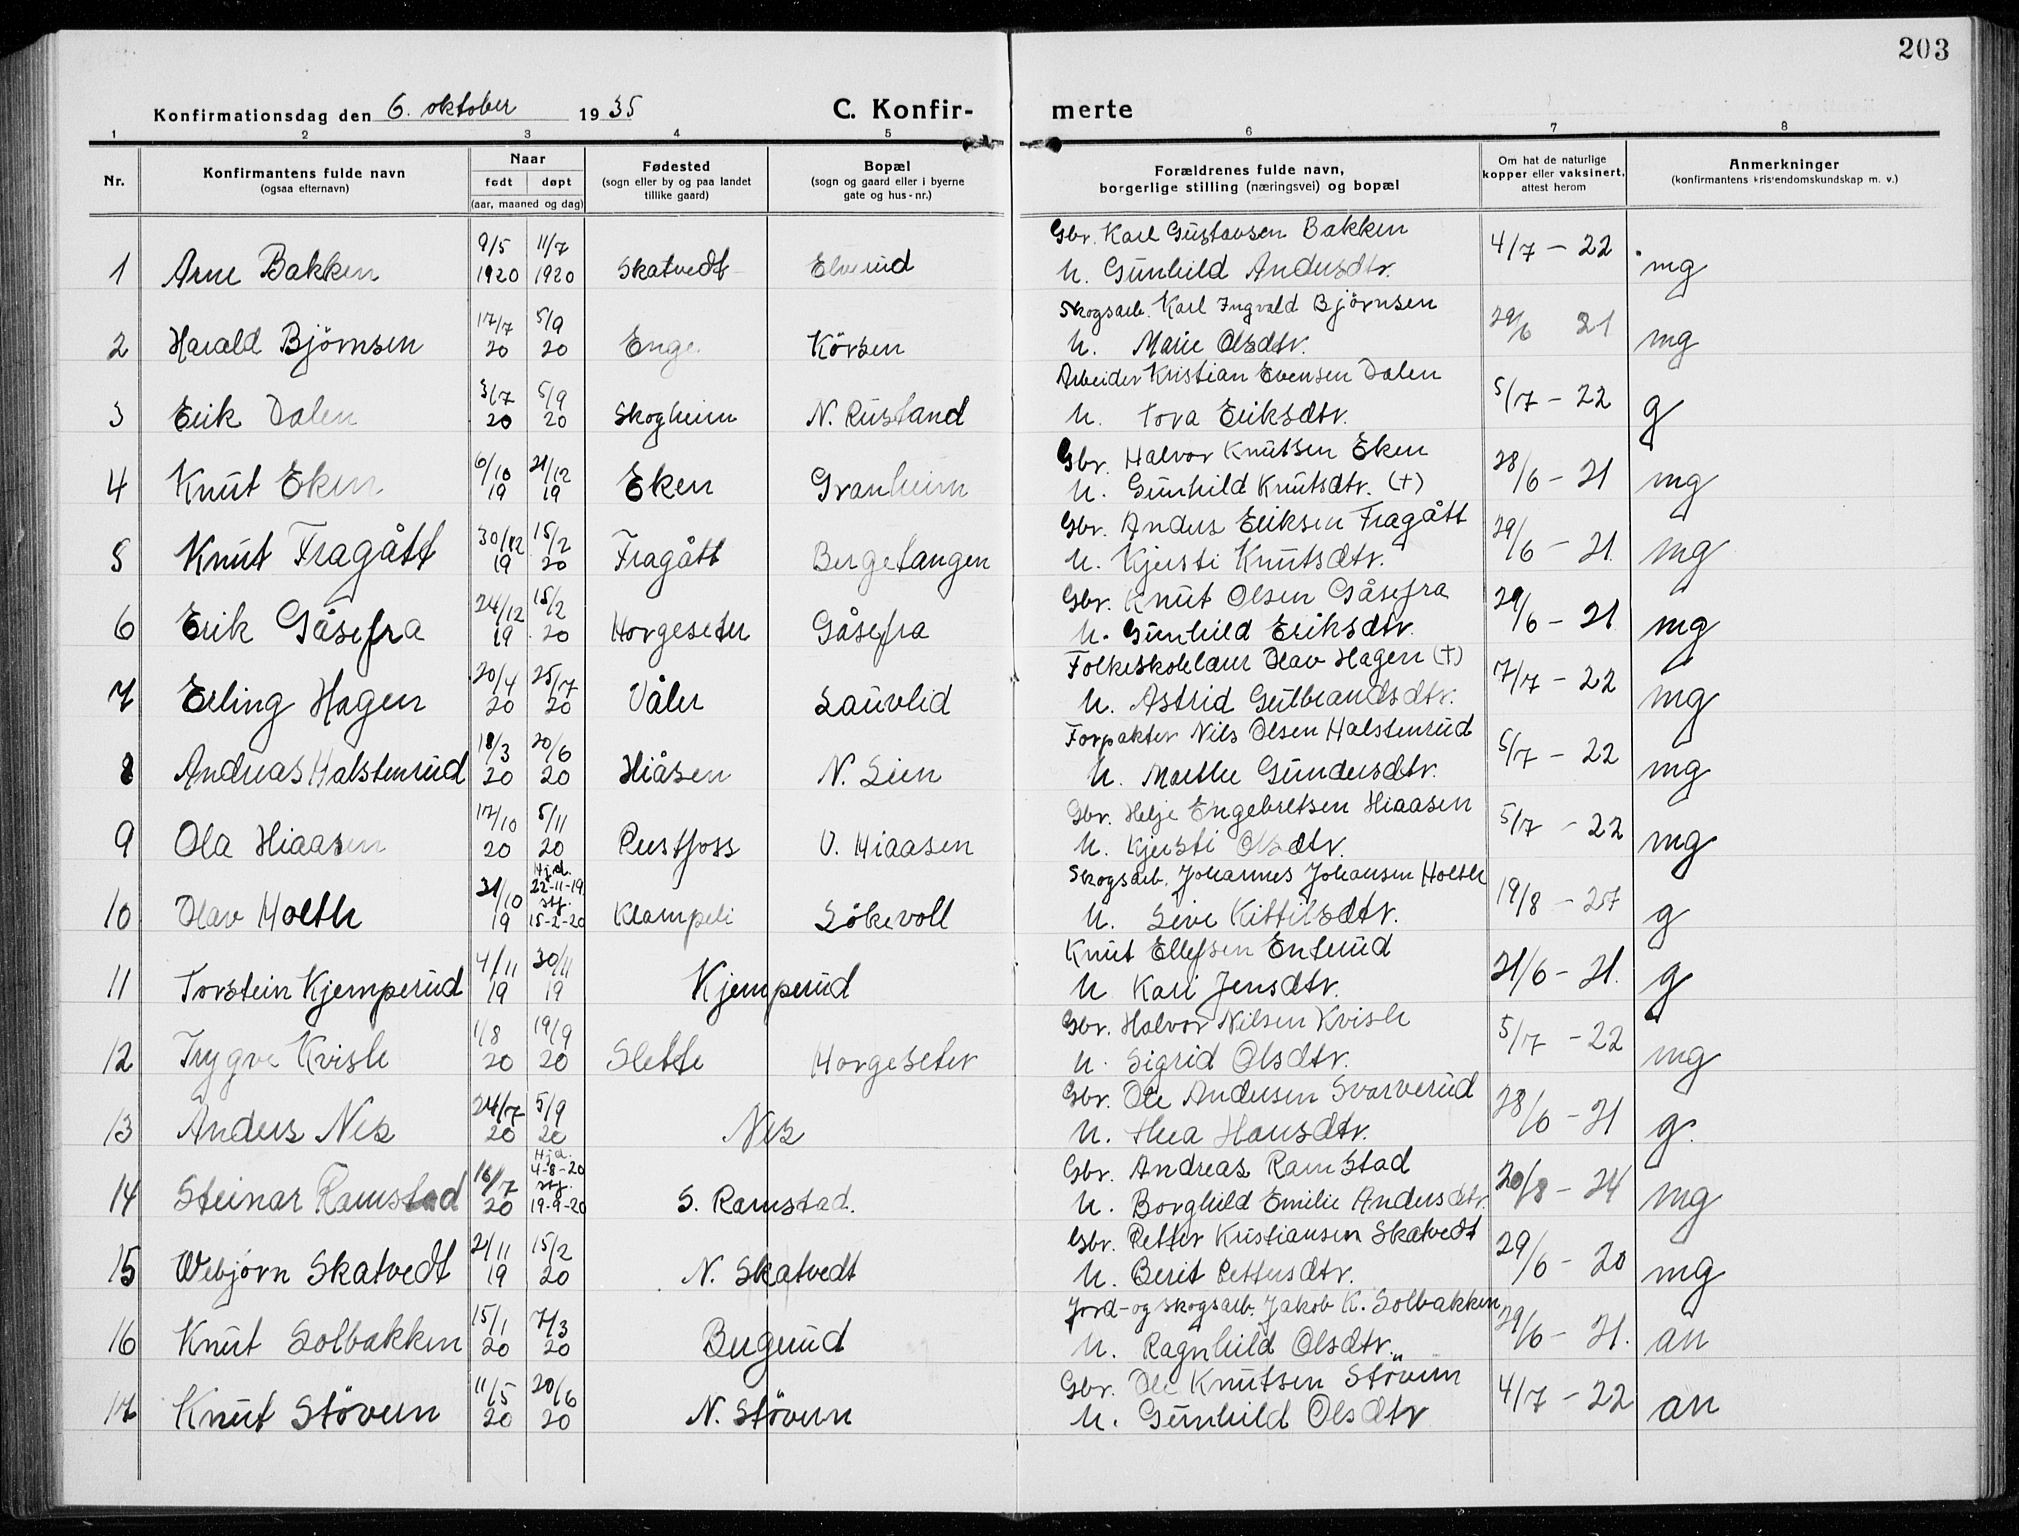 203
Konfirmationsdag den 6. oktober 1935 C. Konfir- merte
1 2 3 4 5 6 7 8
Nr. Konfirmantens fulde navn (ogsaa efternavn) Naar født døpt (aar, maaned og dag) Fødested (sogn eller by og paa landet tillike gaard) Bopæl (sogn og gaard eller i byerne gate og hus-nr.) Forældrenes fulde navn, borgerlige stilling (næringsvei) og bopæl Om hat de naturlige kopper eller vaksinert, attest herom Anmerkninger (konfirmantens kristendomskundskap m. v.)
9/5 11/7 Gbr. Karl Gustavsen Bakken 4/7 - 22
1 Arne Bakken 1920 1920 Skatvedt Elverud u. Gunhild Andersdtr. mg
17/7 5/9 Skogsarb. Karl Ingvald Bjørnsen 29/6 21
2 Harald Björnsen 20 20 Enge Körsen u. Marie Olsdtr. mg
3/7 5/9 Arbeider Kristian Evensen Dalen 5/7 - 22
3 Erik Dalen 20 20 Skogheim N. Rustand u. Tora Eriksdtr. g
6/10 21/12 Gbr. Halvor Knutsen Eken 28/6 - 21
4 Knut Eken 19 19 Eken Granheim u. Gunhild Knutsdtr. (+) mg
30/12 15/2 Gbr. Anders Eriksen Fragått 29/6 - 21
5 Knut Fragått 19 20 Fragått Bergetangen u. Kjersti Knutsdtr. mg
24/12 15/2 Gbr. Knut Olsen Gåsefra 29/6 - 21
6 Erik Gåsefra 19 20 Horgeseter Gåsefra u. Gunhild Eriksdtr. mg
20/4 25/7 Folkeskolelærer Olav Hagen (+) 7/7 - 22
7 Erling Hagen 20 20 Våler Lauvlid u. Astrid Gulbrandsdtr. mg
18/3 20/6 Forpakter Nils Olsen Halstenrud 5/7 - 22
8 Andreas Halstenrud 20 20 Hiåsen N. Lien u. Marthe Gundersdtr. mg
17/10 5/11 Gbr. Helje Engebretsen Hiaasen 5/7 - 22
9 Ola Hiaasen 20 20 Rustfoss V. Hiaasen u. Kjersti Olsdtr. mg
31/10 Hjd. 22-11-19 stf. Skogsarb. Johannes Johansen Holth 19/8 - 27
10 Olav Holth 19 15-2-20 Klampeli Sökevoll u. Live Kittilsdtr. g
4/11 30/11 Knut Ellefsen Enterud 21/6 - 21.
11 Torstein Kjemperud 19 19 Kjemperud u Kari Jensdtr. g
1/8 19/9 Gbr. Halvor Nilsen Kvisle 5/7 - 22
12 Trygve Kvisle 20 20 Slette Horgeseter u. Sigrid Olsdtr. mg
24/7 5/9 Gbr. Ole Andersen Svarverud 28/6 - 21
13 Anders Nes 20 20 Nes u. Thea Hansdtr. g.
16/7 Hjd. 4-8-20 stf. Gbr. Andreas Ramstad 20/8 - 24
14 Steinar Ramstad 20 19-9-20 S. Ramstad. u. Borghild Emilie Andersdtr. mg
21/11 15/2 Gbr. Petter Kristiansen Skatvedt 29/6 - 20
15 Webjørn Skatvedt 19 20 N. Skatvedt u. Berit Pettersdtr. mg
15/1 7/3 Jord- og skogsarb. Jakob K. Solbakken 29/6 - 21.
16 Knut Solbakken 20 20 Bugerud u. Ragnhild Olsdtr. an
11/5 20/6 Gbr. Ole Knutsen Stövern 4/7 - 22
17 Knut Stövern 20 20 N. Stövern u. Gunhild Olsdtr an